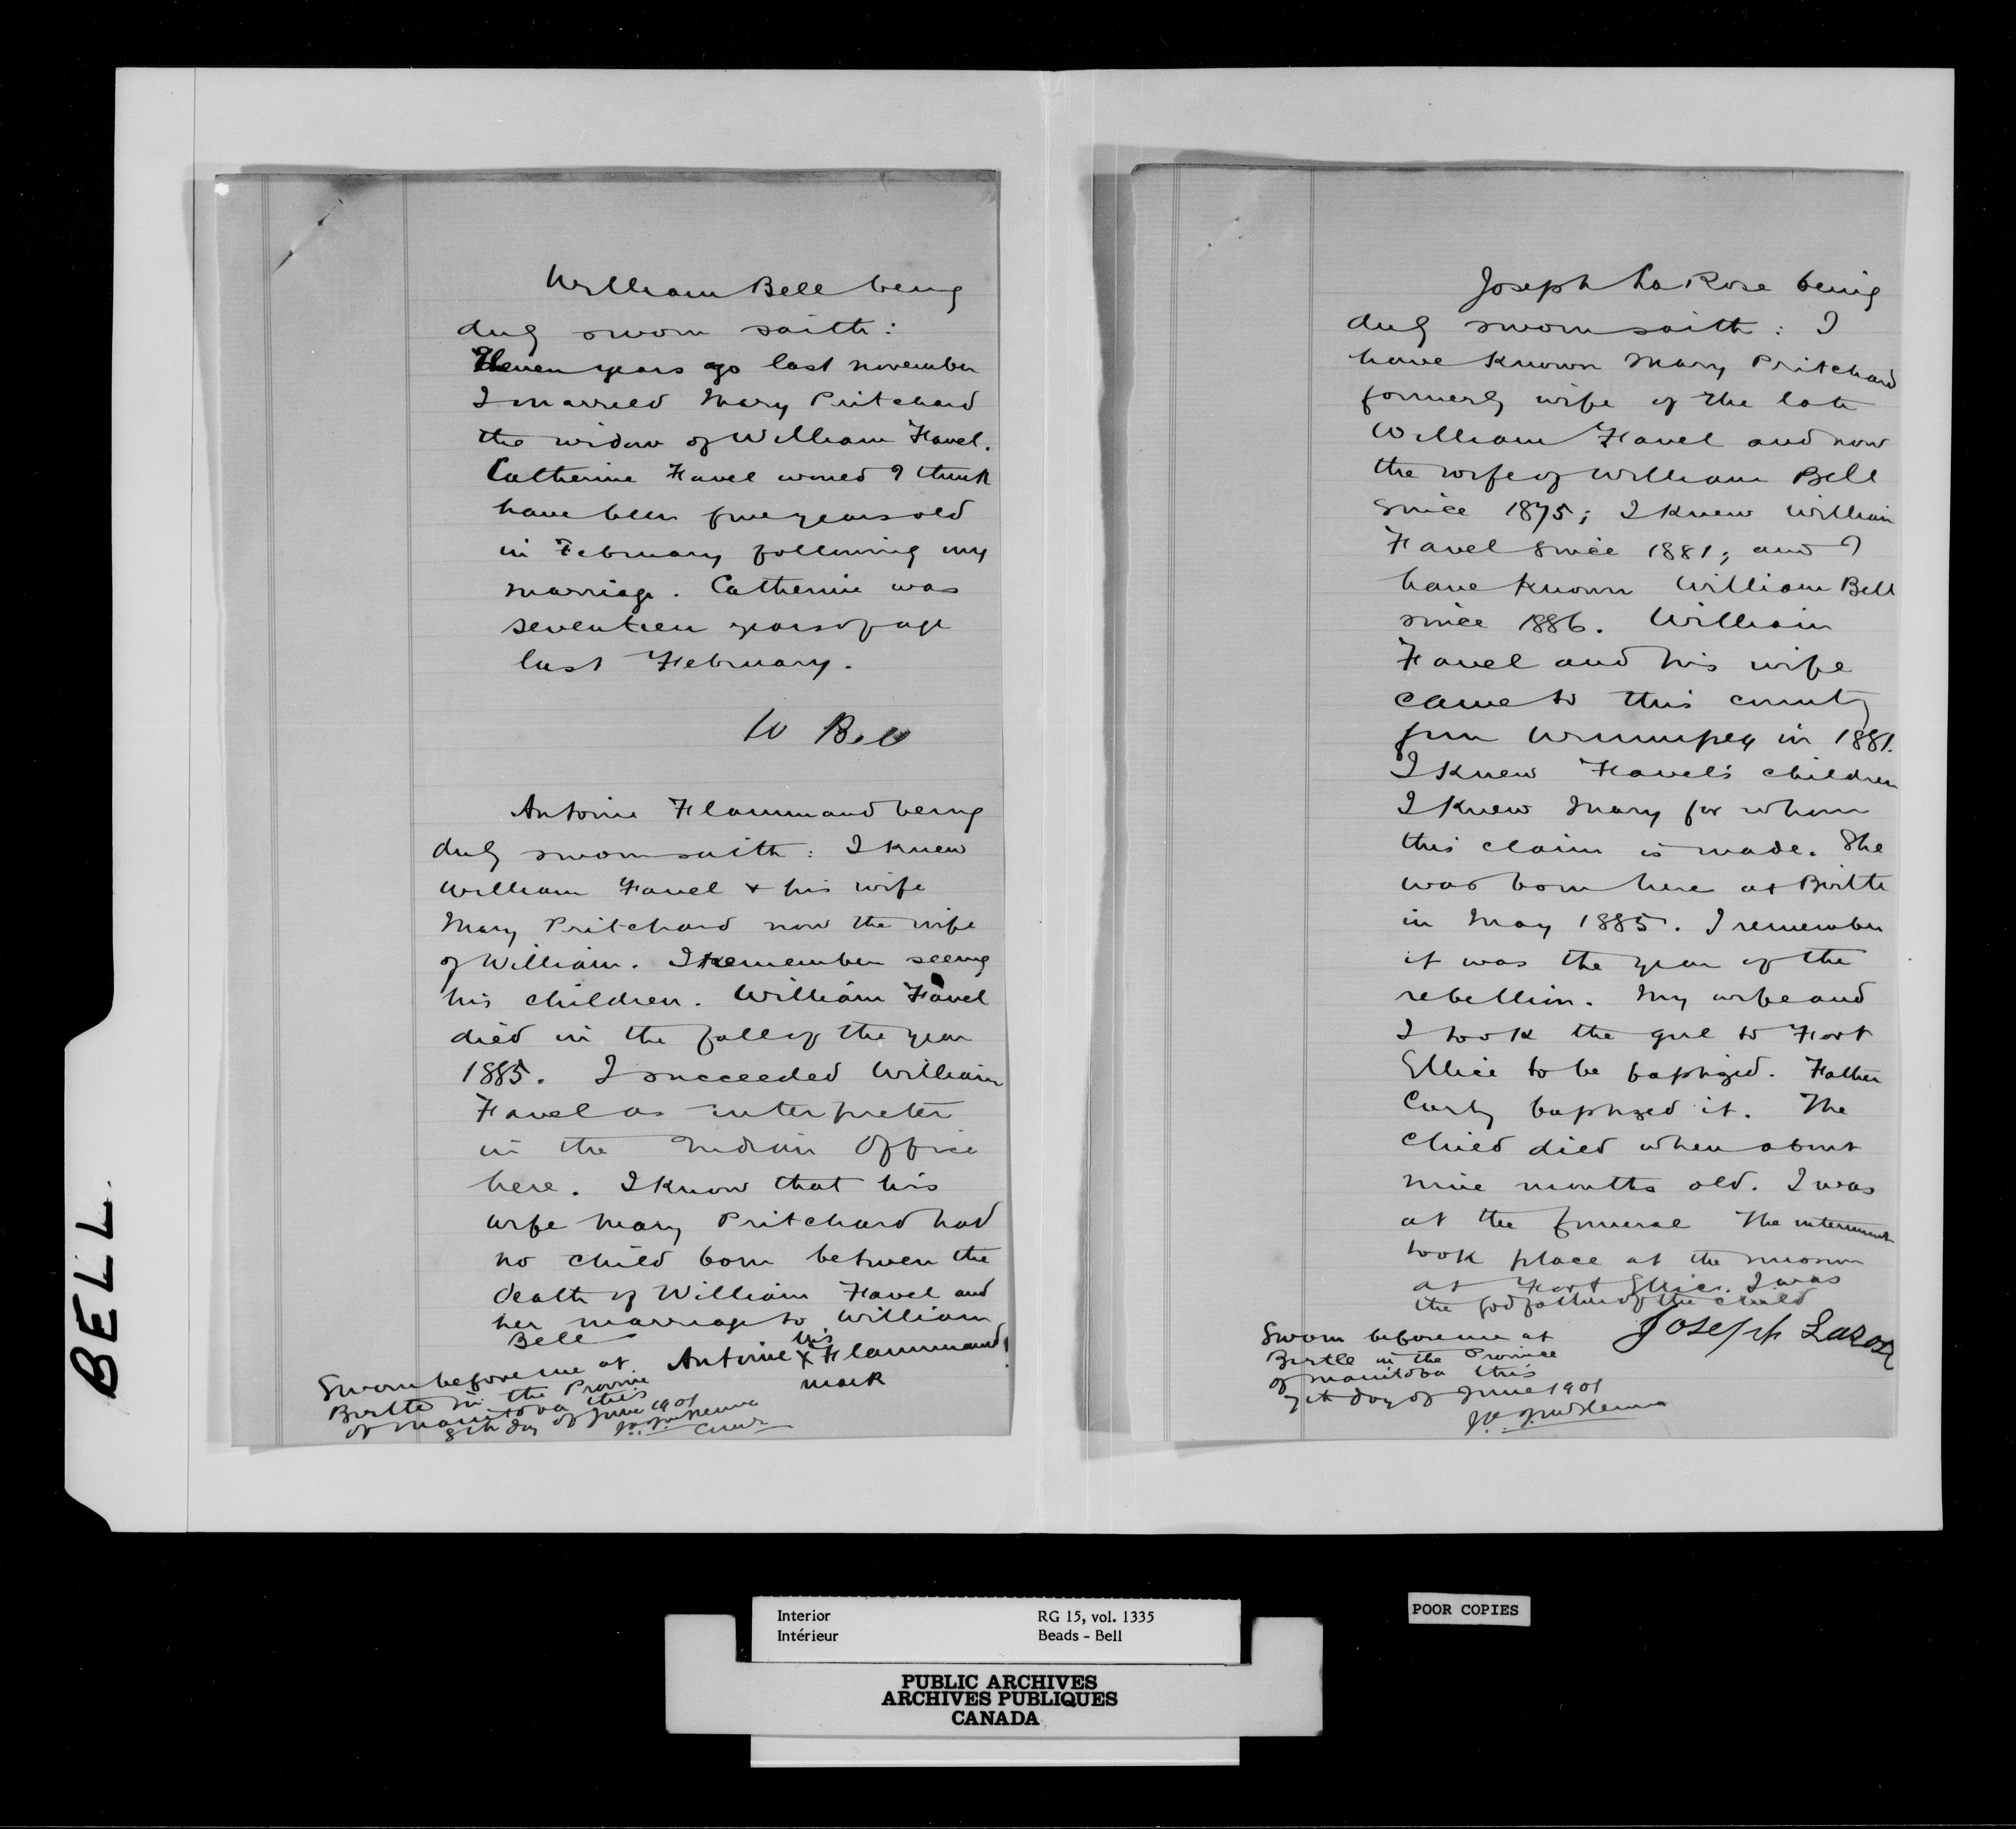 BELL.
William Bell being
duly sworn saith:
Eleven years ago last november
I married Mary Pritchard
the widow of William Favel.
Catherine Favel would I think
have been five years old
in February following my
marriage. Catherine was
seventeen years of age
last February.
W Bell
Antoine Flammand being
duly sworn saith: I knew
William Favel + his wife
Mary Pritchard now the wife
of William. I remember seeing
his children. William Favel
died in the fall of the year
1885. I succeeded William
Favel as interpreter
in the Indian Office
here. I know that his
wife Mary Pritchard had
no child born between the
death of William Favel and
her marriage to William
Bell
his
Antoine X Flammand
mark
Sworn before me at
Birtle in the Province
of Manitoba this
8th day of June 1901
Joseph La Rose being
duly sworn saith: I
have known Mary Pritchard
formerly wife of the late
William Favel and now
the wife of William Bell
since 1875; I knew William
Favel since 1881; and I
have known William Bell
since 1886. William
Favel and his wife
came to this country
from Winnipeg in 1881.
I knew Favel's children
I knew Mary for whom
this claim is made. She
was born here at Birtle
in May 1885. I remember
it was the year of the
rebellion. My wife and
I took the girl to Fort
Ellice to be baptized. Father
baptized it. The
child died when about
nine months old. I was
at the funeral The interment
took place at the mission
at Fort Ellice. I was
the godfather of the child
Joseph Laroze
Sworn before me at
Birtle in the Province
of Manitoba this
7th day of June 1901
Interior RG 15, vol. 1335
Intérieur Beads - Bell
PUBLIC ARCHIVES
ARCHIVES PUBLIQUES
CANADA
POOR COPIES